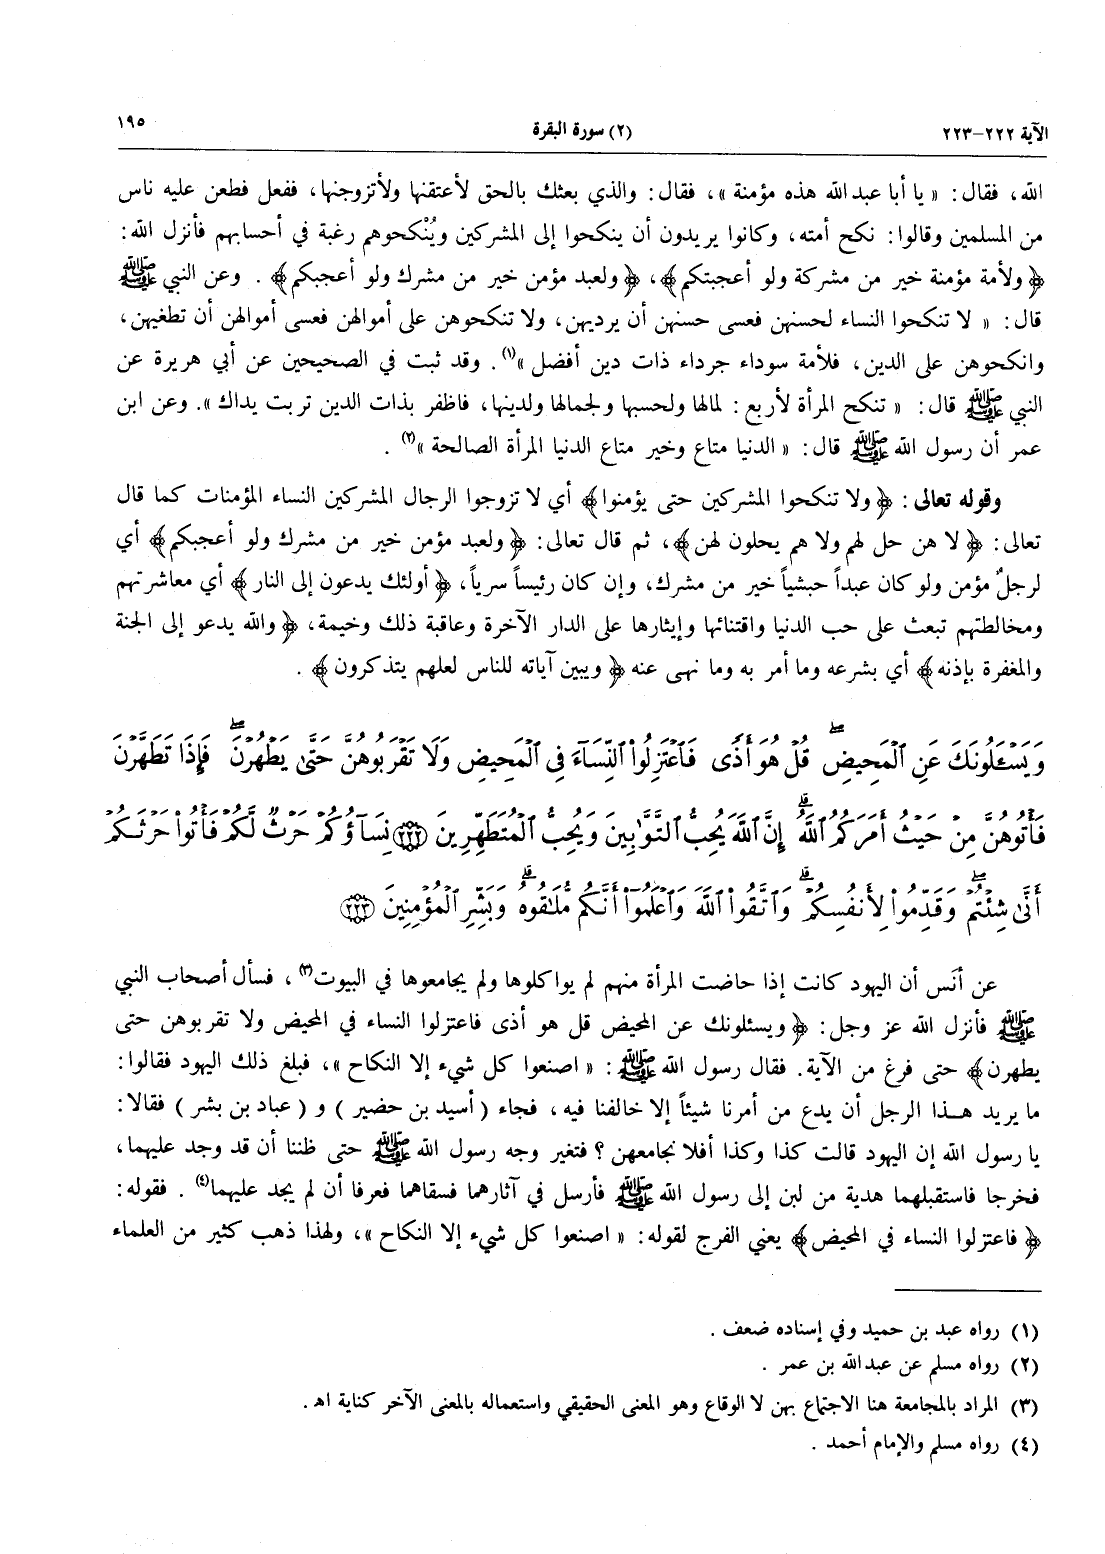 الآية ٢٢٢-٢٢٣ (٢) سورة البقرة ١٩٥
الله، فقال: « يا أبا عبد الله هذه مؤمنة »، فقال: والذي بعثك بالحق لأعتقنها ولأتزوجنها، ففعل فطعن عليه ناس
من المسلمين وقالوا: نكح أمته، وكانوا يريدون أن ينكحوا إلى المشركين ويُنْكحوهم رغبة في أحسابهم فأنزل الله:
﴿ ولأمة مؤمنة خير من مشركة ولو أعجبتكم﴾، ﴿ ولعبد مؤمن خير من مشرك ولو أعجبكم﴾ . وعن النبي ﷺ
قال: « لا تنكحوا النساء لحسنهن فعسى حسنهن أن يرديهن، ولا تنكحوهن على أموالهن فعسى أموالهن أن تطغيهن،
وانكحوهن على الدين، فلأمة سوداء جرداء ذات دين أفضل »(١). وقد ثبت في الصحيحين عن أبي هريرة عن
النبي ﷺ قال: « تنكح المرأة لأربع: لمالها ولحسبها ولجمالها ولدينها، فاظفر بذات الدين تربت يداك ». وعن ابن
عمر أن رسول الله ﷺ قال: « الدنيا متاع وخير متاع الدنيا المرأة الصالحة »(٢) .
وقوله تعالى: ﴿ ولا تنكحوا المشركين حتى يؤمنوا﴾ أي لا تزوجوا الرجال المشركين النساء المؤمنات كما قال
تعالى: ﴿ لا هن حل لهم ولا هم يحلون لهن﴾، ثم قال تعالى: ﴿ ولعبد مؤمن خير من مشرك ولو أعجبكم﴾ أي
لرجلٌ مؤمن ولو كان عبداً حبشياً خير من مشرك، وإن كان رئيساً سرياً، ﴿ أولئك يدعون إلى النار﴾ أي معاشرتهم
ومخالطتهم تبعث على حب الدنيا واقتنائها وإيثارها على الدار الآخرة وعاقبة ذلك وخيمة، ﴿ والله يدعو إلى الجنة
والمغفرة بإذنه﴾ أي بشرعه وما أمر به وما نهى عنه ﴿ ويبين آياته للناس لعلهم يتذكرون﴾ .
وَيَسْـَٔلُونَكَ عَنِ ٱلْمَحِيضِ ۖ قُلْ هُوَ أَذًى فَٱعْتَزِلُوا۟ ٱلنِّسَآءَ فِى ٱلْمَحِيضِ وَلَا تَقْرَبُوهُنَّ حَتَّىٰ يَطْهُرْنَ ۖ فَإِذَا تَطَهَّرْنَ
فَأْتُوهُنَّ مِنْ حَيْثُ أَمَرَكُمُ ٱللَّهُ ۚ إِنَّ ٱللَّهَ يُحِبُّ ٱلتَّوَّٰبِينَ وَيُحِبُّ ٱلْمُتَطَهِّرِينَ ﴿٢٢٢﴾ نِسَآؤُكُمْ حَرْثٌ لَّكُمْ فَأْتُوا۟ حَرْثَكُمْ
أَنَّىٰ شِئْتُمْ ۖ وَقَدِّمُوا۟ لِأَنفُسِكُمْ ۚ وَٱتَّقُوا۟ ٱللَّهَ وَٱعْلَمُوٓا۟ أَنَّكُم مُّلَٰقُوهُ ۗ وَبَشِّرِ ٱلْمُؤْمِنِينَ ﴿٢٢٣﴾
عن أنَس أن اليهود كانت إذا حاضت المرأة منهم لم يواكلوها ولم يجامعوها في البيوت(٣)، فسأل أصحاب النبي
ﷺ فأنزل الله عز وجل: ﴿ ويسئلونك عن المحيض قل هو أذى فاعتزلوا النساء في المحيض ولا تقربوهن حتى
يطهرن﴾ حتى فرغ من الآية. فقال رسول الله ﷺ: « اصنعوا كل شيء إلا النكاح »، فبلغ ذلك اليهود فقالوا:
ما يريد هـذا الرجل أن يدع من أمرنا شيئاً إلا خالفنا فيه، فجاء ( أسيد بن حضير ) و ( عباد بن بشر ) فقالا:
يا رسول الله إن اليهود قالت كذا وكذا أفلا نجامعهن ؟ فتغير وجه رسول الله ﷺ حتى ظننا أن قد وجد عليهما،
فخرجا فاستقبلهما هدية من لبن إلى رسول الله ﷺ فأرسل في آثارهما فسقاهما فعرفا أن لم يجد عليهما(٤) . فقوله:
﴿ فاعتزلوا النساء في المحيض﴾ يعني الفرج لقوله: « اصنعوا كل شيء إلا النكاح »، ولهذا ذهب كثير من العلماء
(١) رواه عبد بن حميد وفي إسناده ضعف .
(٢) رواه مسلم عن عبدالله بن عمر .
(٣) المراد بالمجامعة هنا الاجتماع بهن لا الوقاع وهو المعنى الحقيقي واستعماله بالمعنى الآخر كناية اهـ .
(٤) رواه مسلم والإمام أحمد .